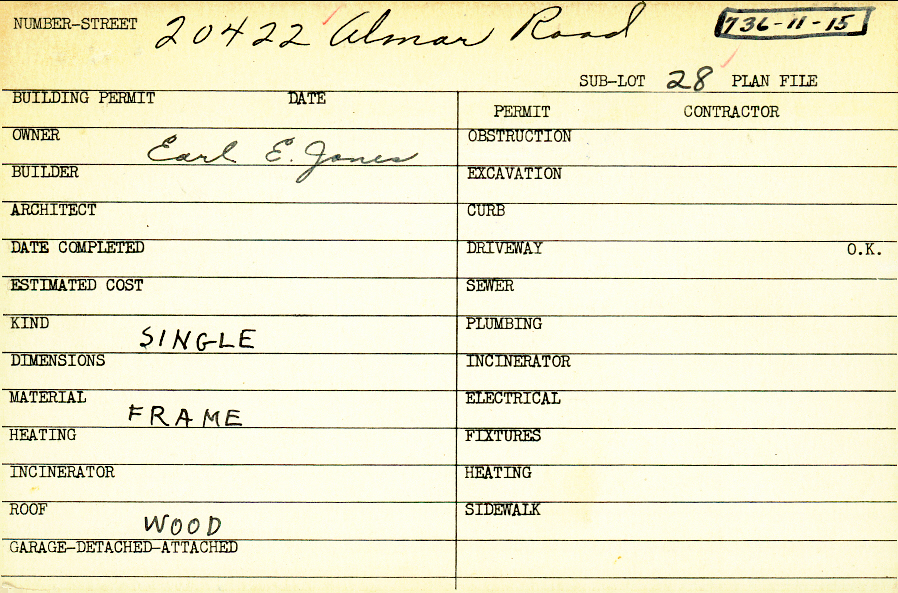 NUMBER-STREET 20422 Almar Road 736-11-15
SUB-LOT 28 PLAN FILE
BUILDING PERMIT DATE
PERMIT CONTRACTOR
OWNER Earl E. Jones
OBSTRUCTION
BUILDER
EXCAVATION
ARCHITECT
CURB
DATE COMPLETED
DRIVEWAY O.K.
ESTIMATED COST
SEWER
KIND SINGLE
PLUMBING
DIMENSIONS
INCINERATOR
MATERIAL FRAME
ELECTRICAL
HEATING
FIXTURES
INCINERATOR
HEATING
ROOF WOOD
SIDEWALK
GARAGE-DETACHED-ATTACHED